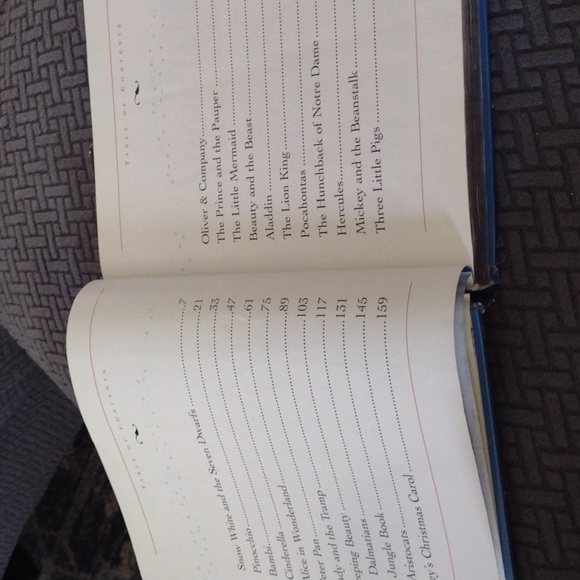 TABLE OF CONTENTS
Snow White and the Seven Dwarfs ..........7
Pinocchio ..........21
Bambi ..........33
Cinderella ..........47
lice in Wonderland ..........61
eter Pan ..........75
dy and the Tramp ..........89
eping Beauty ..........103
Dalmatians ..........117
Jungle Book ..........131
Aristocats ..........145
y's Christmas Carol ..........159
TABLE OF CONTENTS
Oliver & Company ..........
The Prince and the Pauper ..........
The Little Mermaid ..........
Beauty and the Beast ..........
Aladdin ..........
The Lion King ..........
Pocahontas ..........
The Hunchback of Notre Dame ..........
Hercules ..........
Mickey and the Beanstalk ..........
Three Little Pigs ..........